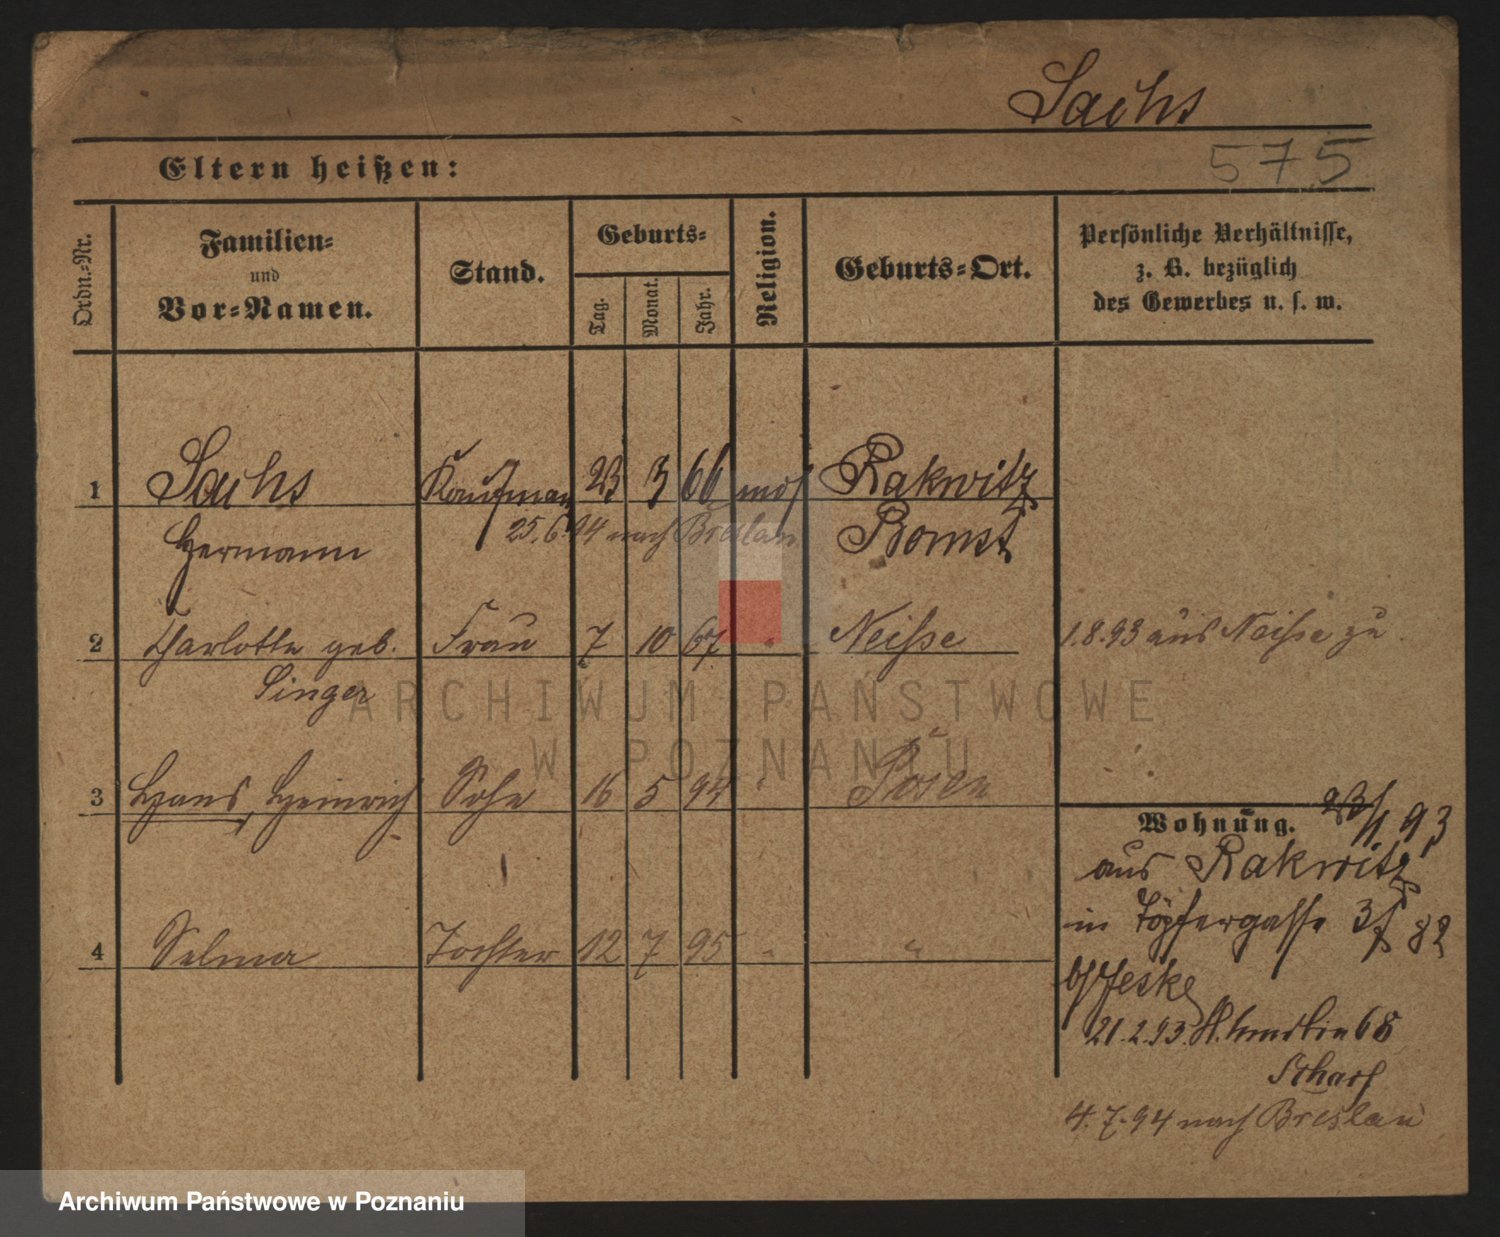 Sachs
575
Eltern heißen:
Ordn.-Nr.
Familien-
und
Vor-Namen.
Stand.
Geburts-
Tag.
Monat.
Jahr.
Religion.
Geburts-Ort.
Persönliche Verhältnisse,
z. B. bezüglich
des Gewerbes u. s. w.
1 Sachs Kaufmann 23 3 66 mos Rakwitz
Hermann 25.6.94 nach Breslau Bomst
2 Charlotte geb. Frau 7 10 67 " Neisse 1.8.93 aus Neisse zu
Singer
3 Hans, Heinrich Sohn 16 5 94 " Posen
Wohnung. 23/1 93
aus Rakwitz
in Töpfergasse 3 82
4 Selma Tochter 12 7 95 " "
b/ Jeske
21.2.93. 68
Scharf
4.7.94 nach Breslau
ARCHIWUM PAŃSTWOWE
W POZNANIU
Archiwum Państwowe w Poznaniu